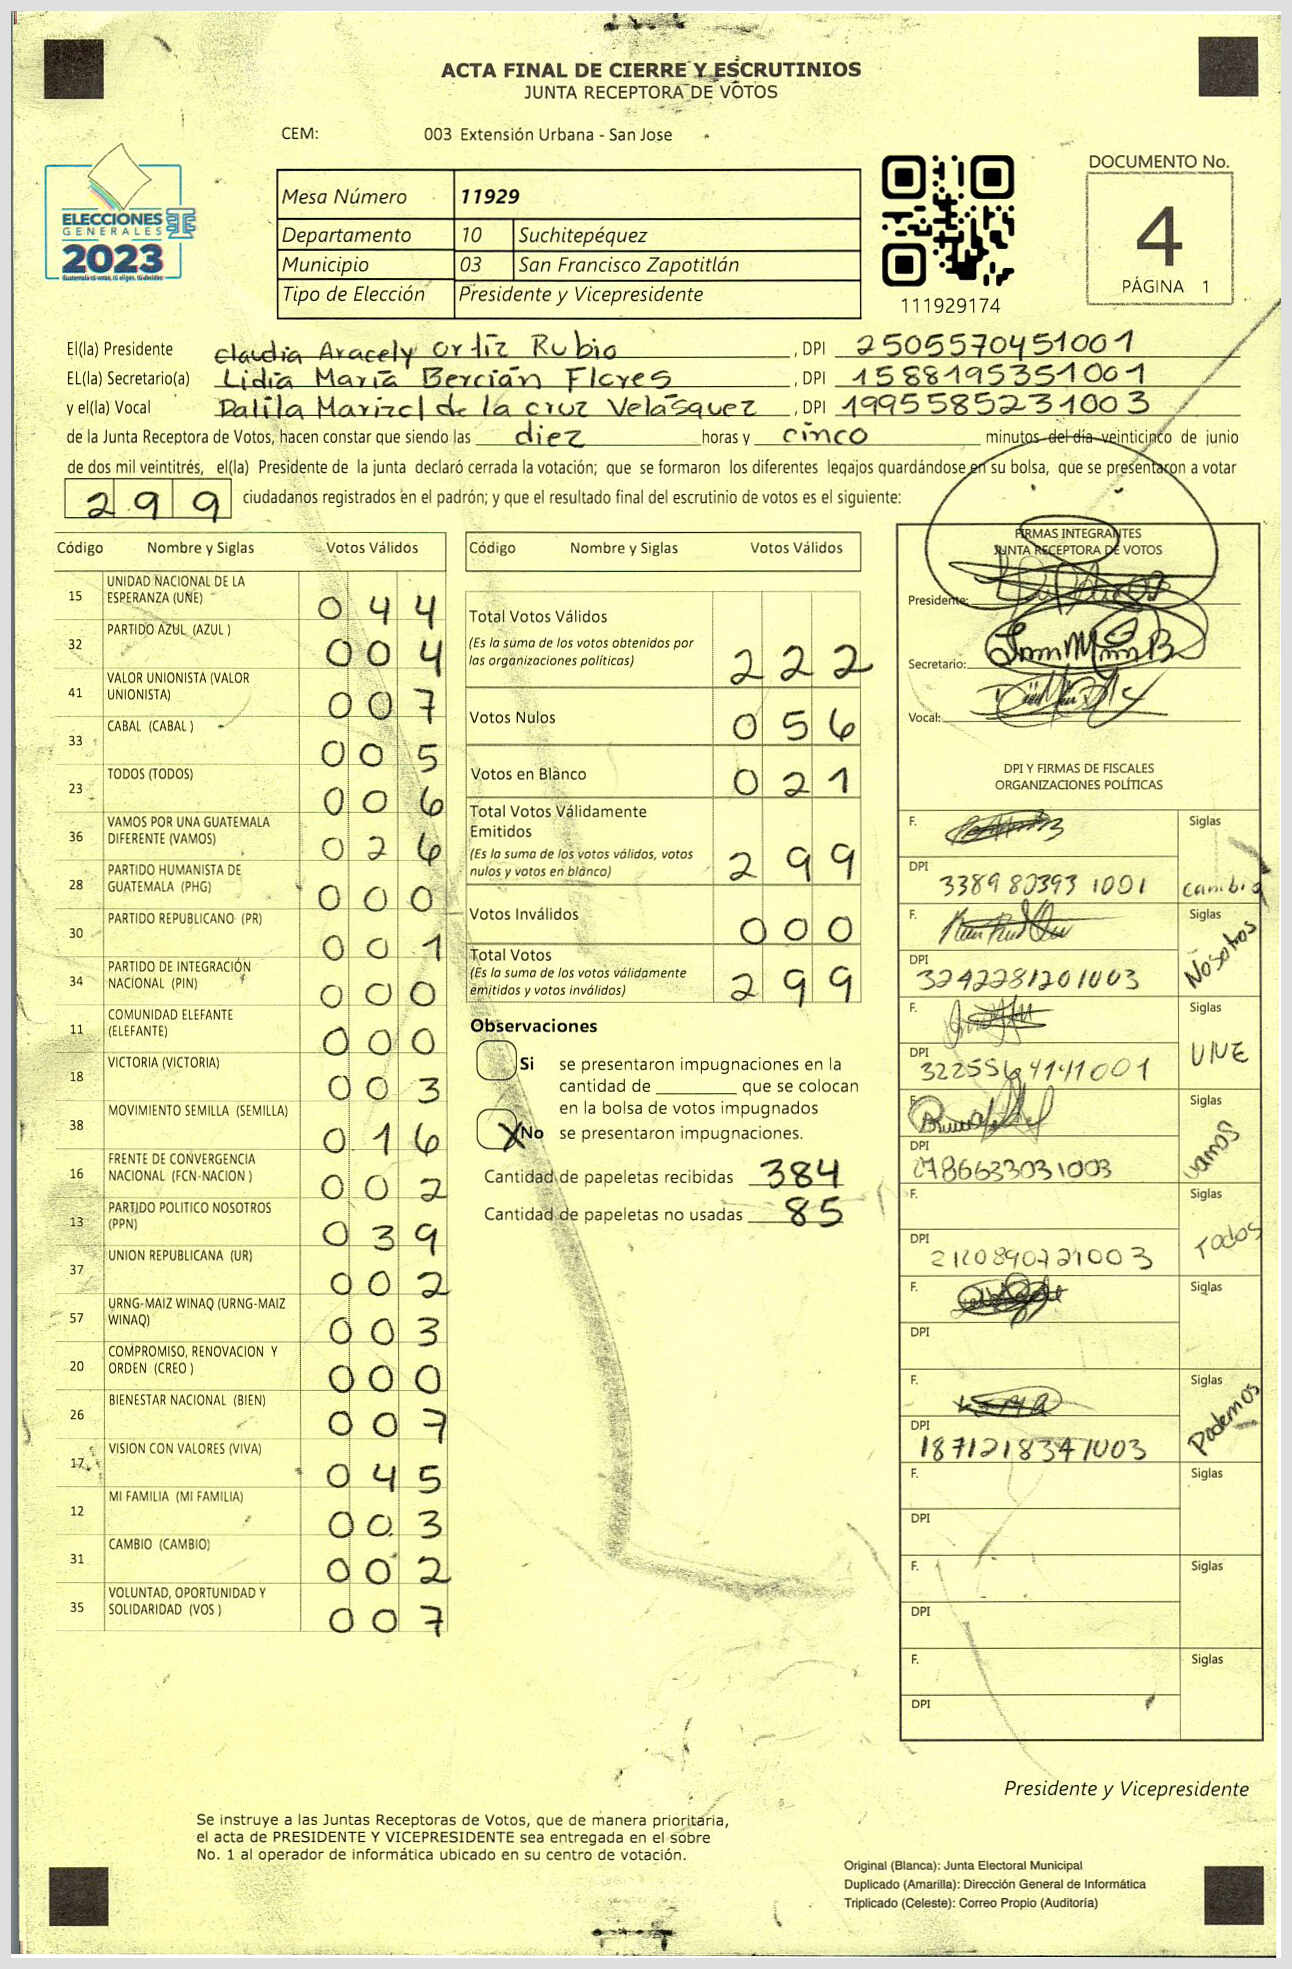 ACTA FINAL DE CIERRE Y ESCRUTINIOS
JUNTA RECEPTORA DE VOTOS
CEM: 003 Extensión Urbana - San Jose
ELECCIONES
GENERALES
2023
Mesa Número 11929
Departamento 10 Suchitepéquez
Municipio 03 San Francisco Zapotitlán
Tipo de Elección Presidente y Vicepresidente
111929174
DOCUMENTO No.
4
PÁGINA 1
El(la) Presidente Claudia Aracely Ortíz Rubio , DPI 2505570451001
EL(la) Secretario(a) Lidia María Bercián Flores , DPI 1588195351001
y el(la) Vocal Dalila Marizel de la cruz Velásquez , DPI 1995585231003
de la Junta Receptora de Votos, hacen constar que siendo las diez horas y cinco minutos del día veinticinco de junio
de dos mil veintitrés, el(la) Presidente de la junta declaró cerrada la votación; que se formaron los diferentes legajos guardándose en su bolsa, que se presentaron a votar
299 ciudadanos registrados en el padrón; y que el resultado final del escrutinio de votos es el siguiente:
Código Nombre y Siglas Votos Válidos
15 UNIDAD NACIONAL DE LA ESPERANZA (UNE) 044
32 PARTIDO AZUL (AZUL ) 004
41 VALOR UNIONISTA (VALOR UNIONISTA) 007
33 CABAL (CABAL ) 005
23 TODOS (TODOS) 006
36 VAMOS POR UNA GUATEMALA DIFERENTE (VAMOS) 026
28 PARTIDO HUMANISTA DE GUATEMALA (PHG) 000
30 PARTIDO REPUBLICANO (PR) 001
34 PARTIDO DE INTEGRACIÓN NACIONAL (PIN) 000
11 COMUNIDAD ELEFANTE (ELEFANTE) 000
18 VICTORIA (VICTORIA) 003
38 MOVIMIENTO SEMILLA (SEMILLA) 016
16 FRENTE DE CONVERGENCIA NACIONAL (FCN-NACION ) 002
13 PARTIDO POLITICO NOSOTROS (PPN) 039
37 UNION REPUBLICANA (UR) 002
57 URNG-MAIZ WINAQ (URNG-MAIZ WINAQ) 003
20 COMPROMISO, RENOVACION Y ORDEN (CREO ) 000
26 BIENESTAR NACIONAL (BIEN) 007
17 VISION CON VALORES (VIVA) 045
12 MI FAMILIA (MI FAMILIA) 003
31 CAMBIO (CAMBIO) 002
35 VOLUNTAD, OPORTUNIDAD Y SOLIDARIDAD (VOS ) 007
Código Nombre y Siglas Votos Válidos
Total Votos Válidos 222
(Es la suma de los votos obtenidos por
las organizaciones políticas)
Votos Nulos 056
Votos en Blanco 021
Total Votos Válidamente
Emitidos 299
(Es la suma de los votos válidos, votos
nulos y votos en blanco)
Votos Inválidos 000
Total Votos 299
(Es la suma de los votos válidamente
emitidos y votos inválidos)
Observaciones
Si se presentaron impugnaciones en la
cantidad de ________ que se colocan
en la bolsa de votos impugnados
X No se presentaron impugnaciones.
Cantidad de papeletas recibidas 384
Cantidad de papeletas no usadas 85
FIRMAS INTEGRANTES
JUNTA RECEPTORA DE VOTOS
Presidente:
Secretario:
Vocal:
DPI Y FIRMAS DE FISCALES
ORGANIZACIONES POLÍTICAS
F. Siglas
DPI 3389803931001 cambio
F. Siglas
DPI 3242281201003 Nosotros
F. Siglas
DPI 3225564141001 VIVE
F. Siglas
DPI vamos
F. Siglas
DPI Todos
F. Siglas
DPI
F. Siglas
DPI 1871218341003 Podemos
F. Siglas
DPI
F. Siglas
DPI
F. Siglas
DPI
Presidente y Vicepresidente
Se instruye a las Juntas Receptoras de Votos, que de manera prioritaria,
el acta de PRESIDENTE Y VICEPRESIDENTE sea entregada en el sobre
No. 1 al operador de informática ubicado en su centro de votación.
Original (Blanca): Junta Electoral Municipal
Duplicado (Amarilla): Dirección General de Informática
Triplicado (Celeste): Correo Propio (Auditoría)